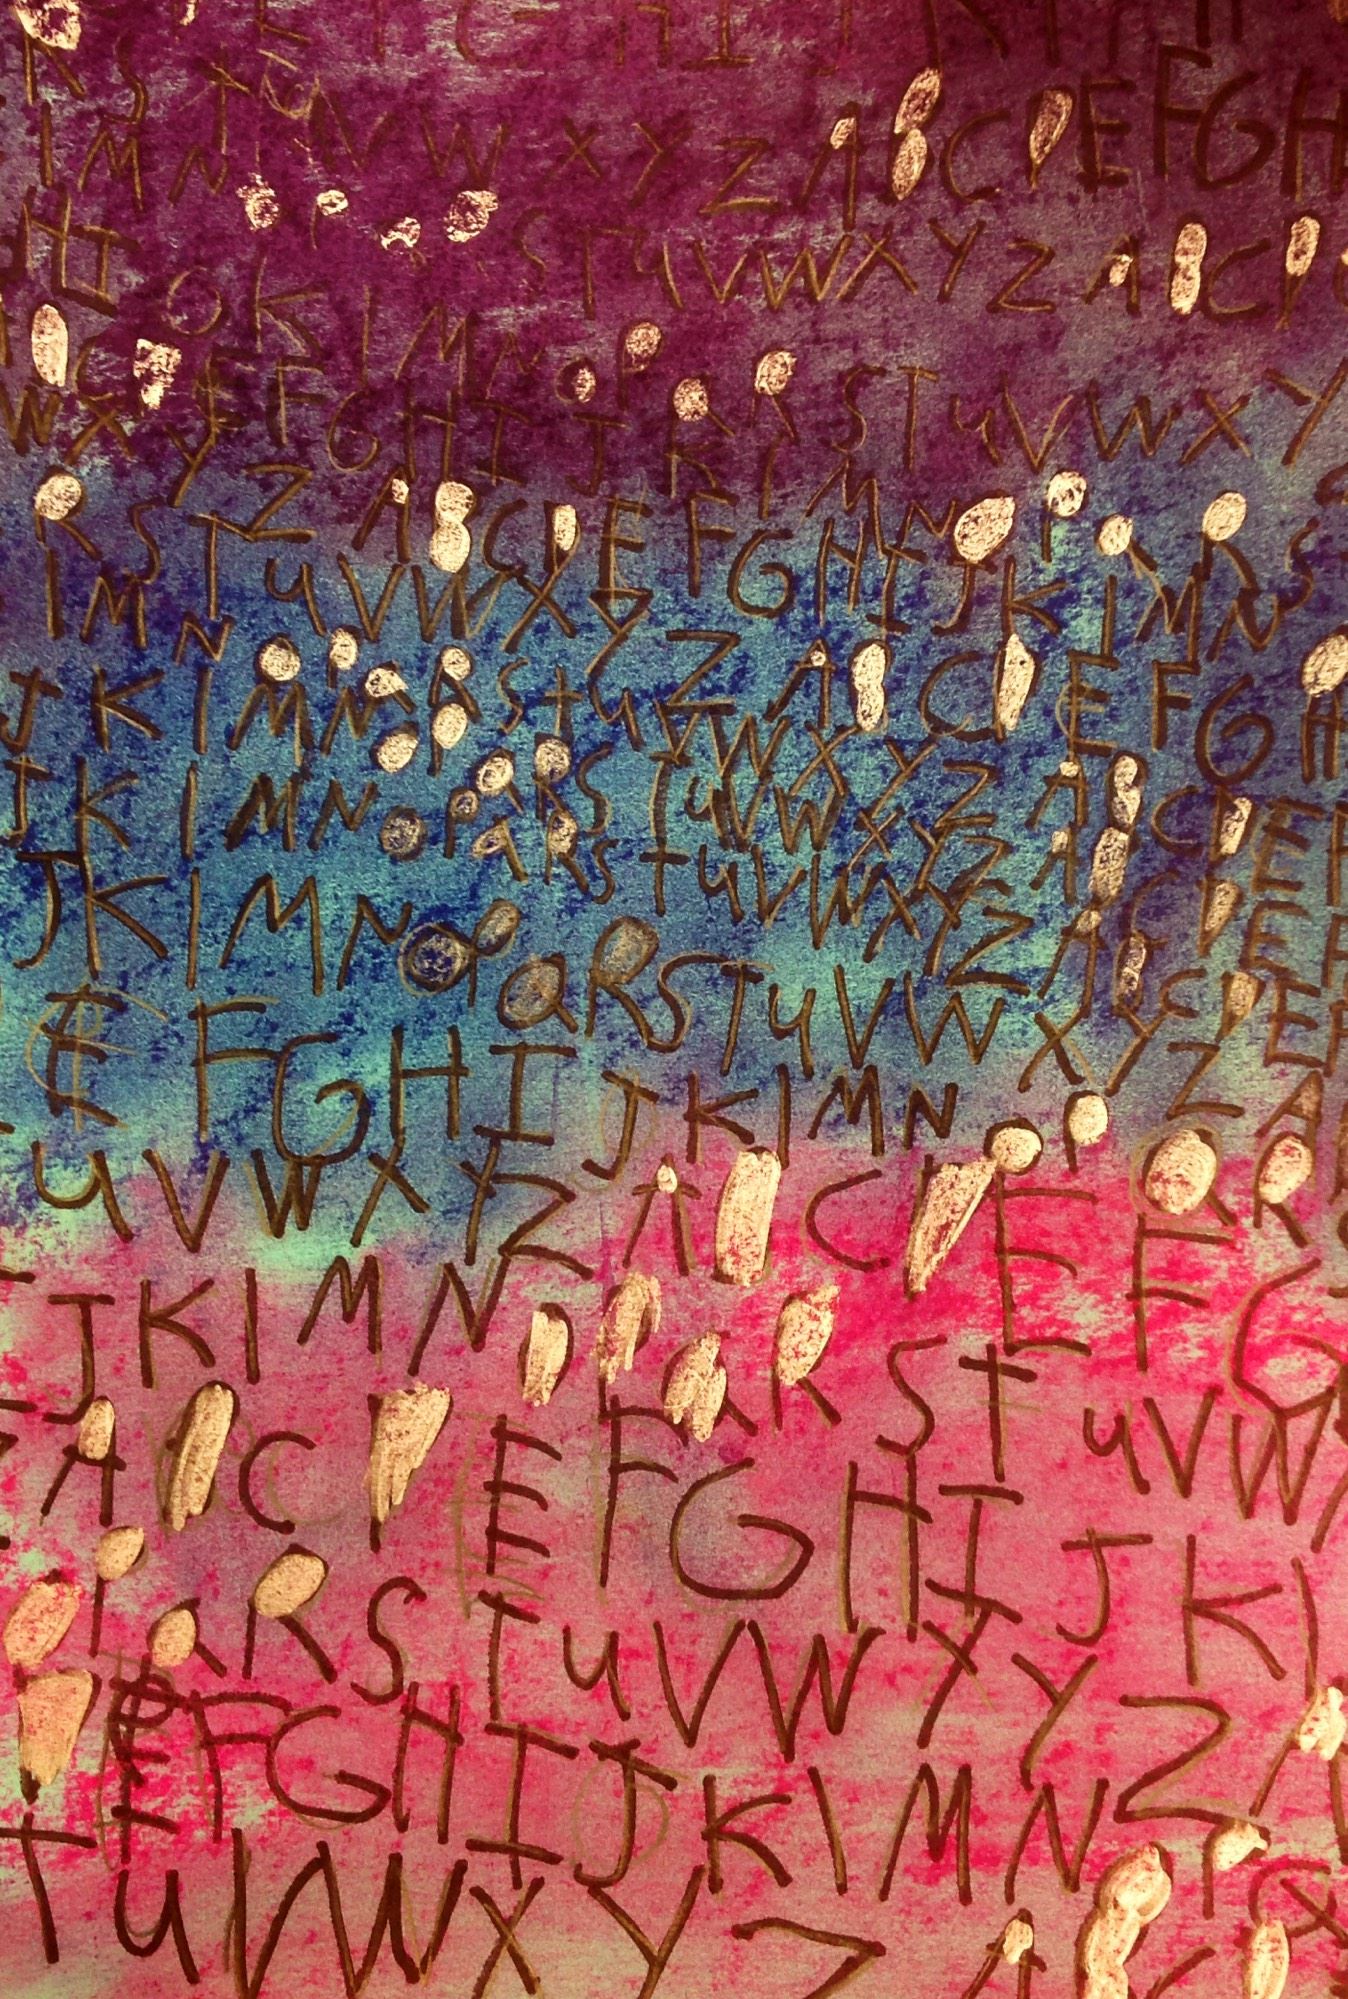 E F G H I J K
R S T U V W X Y Z A B C D E F G H
I M N O P Q R S T U V W X Y Z A B C D
H I J K I M N O P Q R S T U V W X Y
A B C D E F G H I J K I M N O P Q R S
W X Y Z A B C D E F G H I J K I M N
R S T U V W X Y Z A B C D E F G H
I M N O P Q R S T U V W X Y Z A B C D E F
J K I M N O P Q R S T U V W X Y Z A B C D E F
J K I M N O P Q R S T U V W X Y Z A B C D E F
J K I M N O P Q R S T U V W X Y Z A
E F G H I J K I M N O P Q R
U V W X Y Z A B C D E F G
J K I M N O P Q R S T U V W X
Z A B C D E F G H I J K I
O P Q R S T U V W X Y Z A
D E F G H I J K I M N O P Q
T U V W X Y Z A B C D